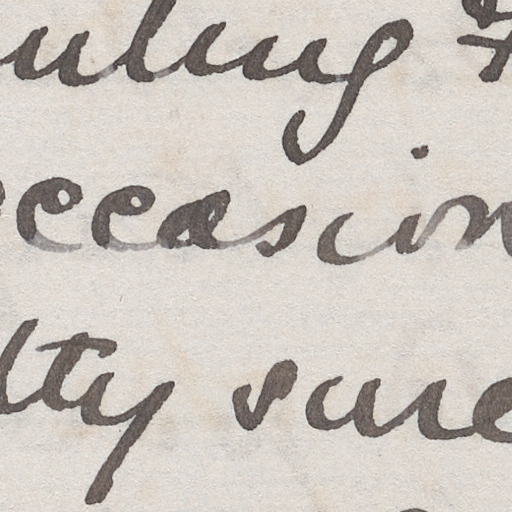 uling
occasion
lty sure